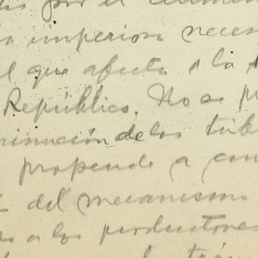 por el
imperiosa neces
l que afecta a la
República. No se p
minución de los trib
propende a con
del mecanismo
a los productores